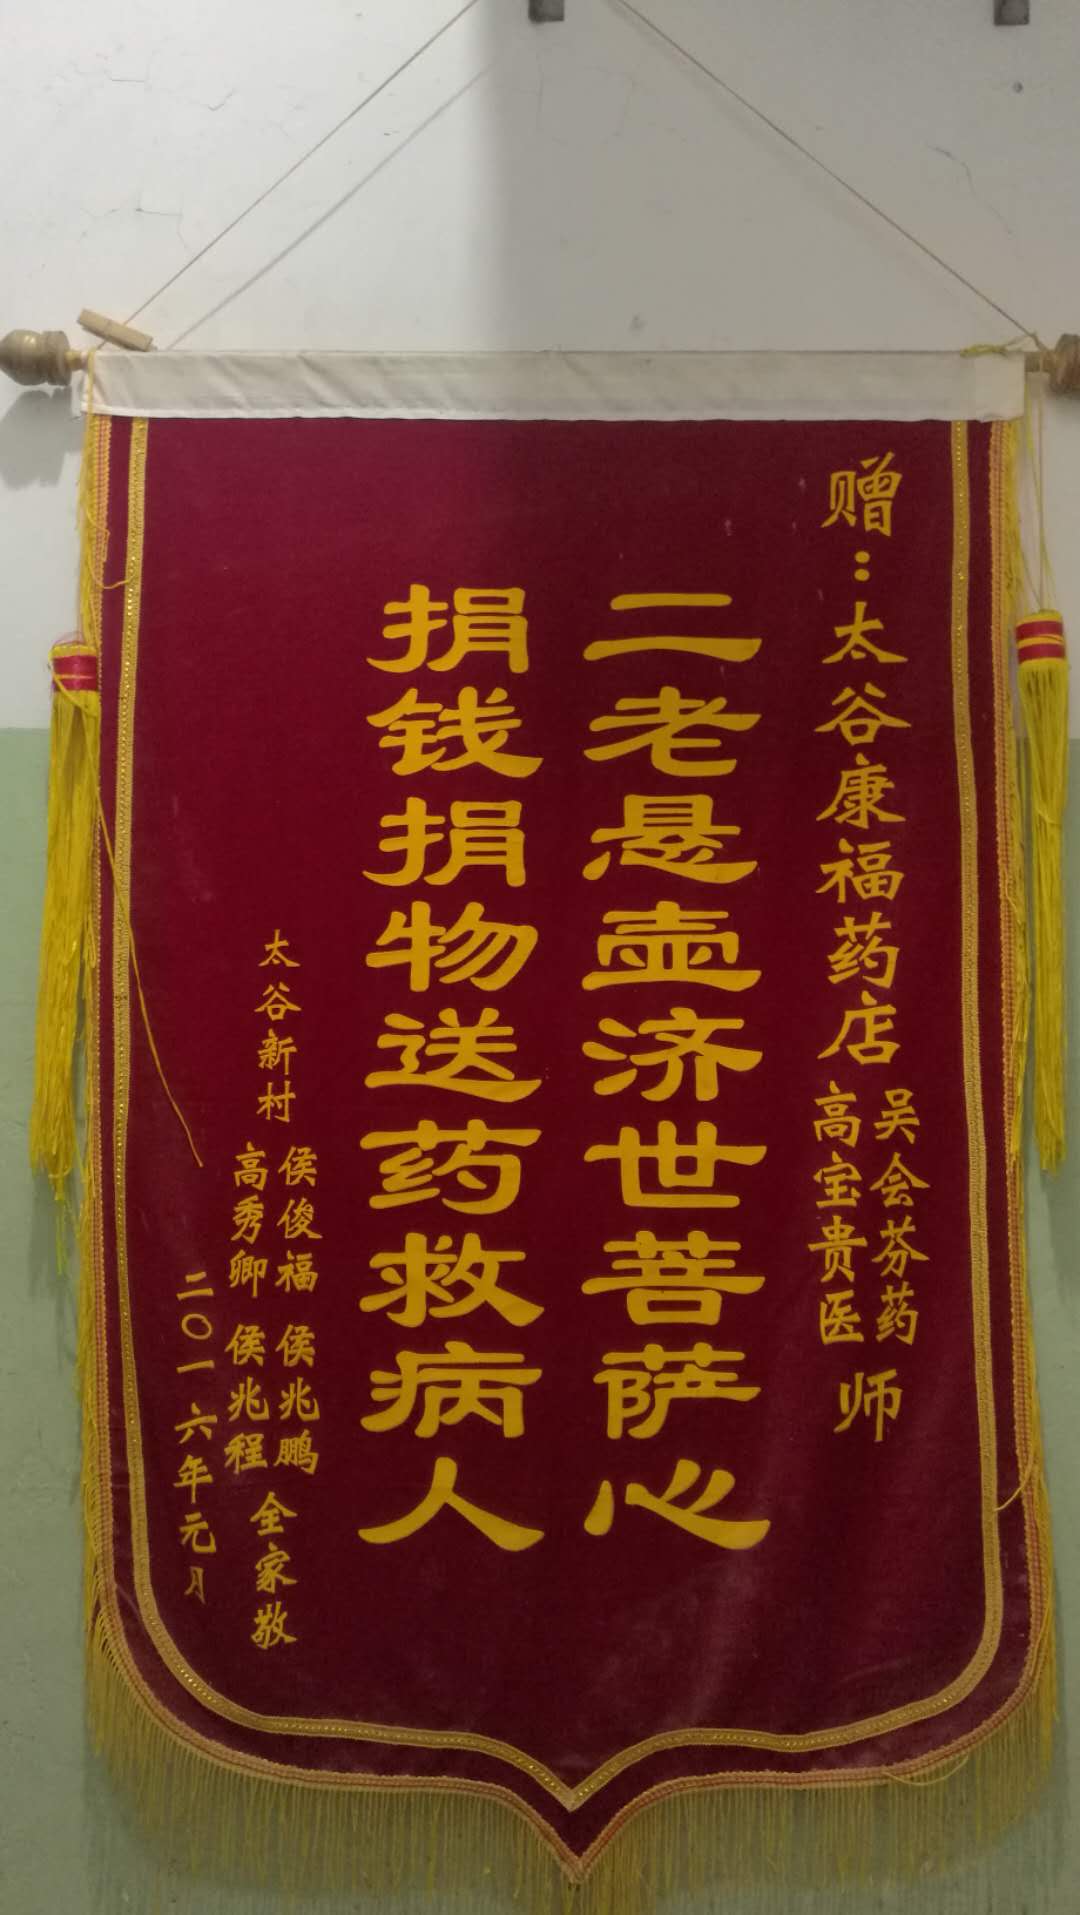 赠：太谷康福药店
吴会芬药
高宝贵医
师
二老悬壶济世菩萨心
捐钱捐物送药救病人
太谷新村
侯俊福 侯兆鹏
高秀卿 侯兆程
全家敬
二〇一六年元月